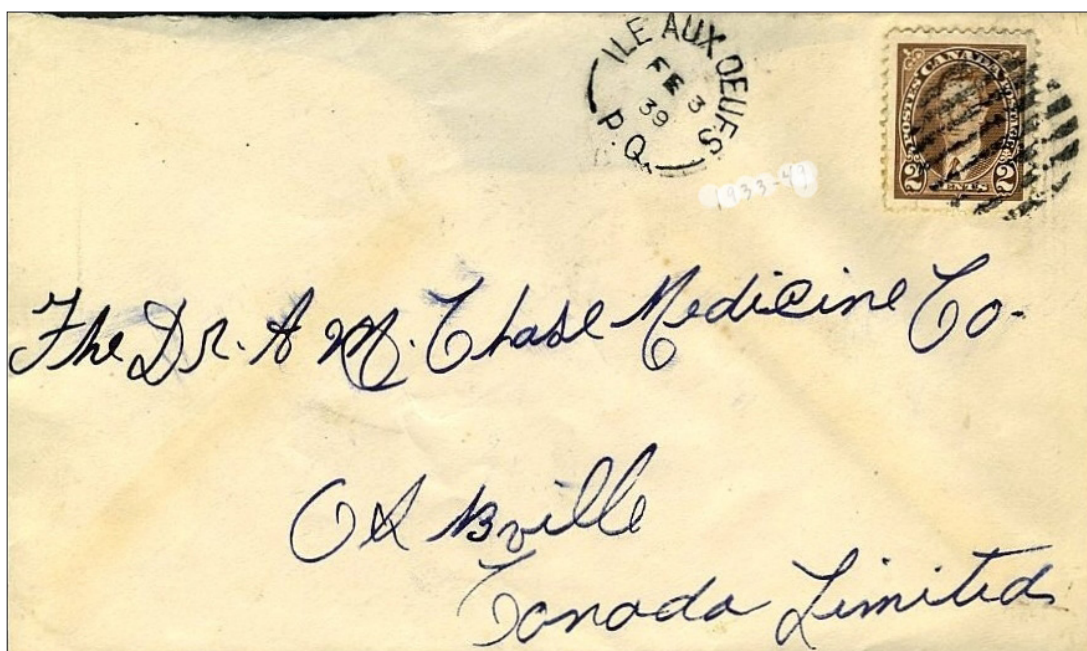 ILE AUX OEUFS
FE 3
39
P.Q.
POSTES CANADA POSTAGE
2 CENTS 2
1933-47
The Dr. A M. Chase Medicine Co.
Canada Limited